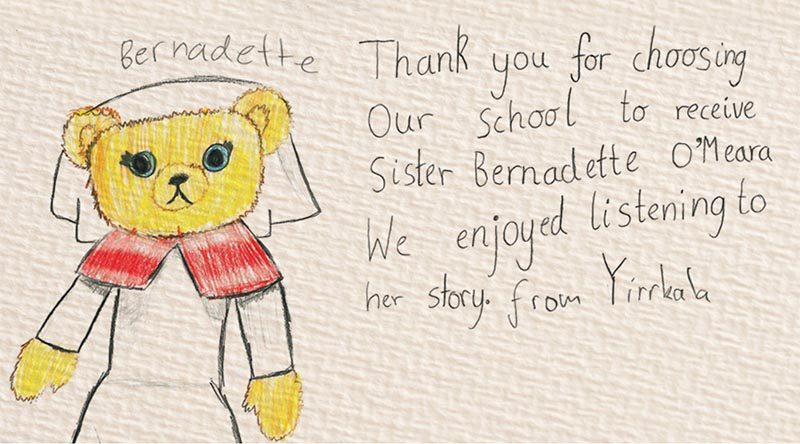 Bernadette
Thank you for choosing
Our school to receive
Sister Bernadette O'Meara
We enjoyed listening to
her story. from Yirrkala